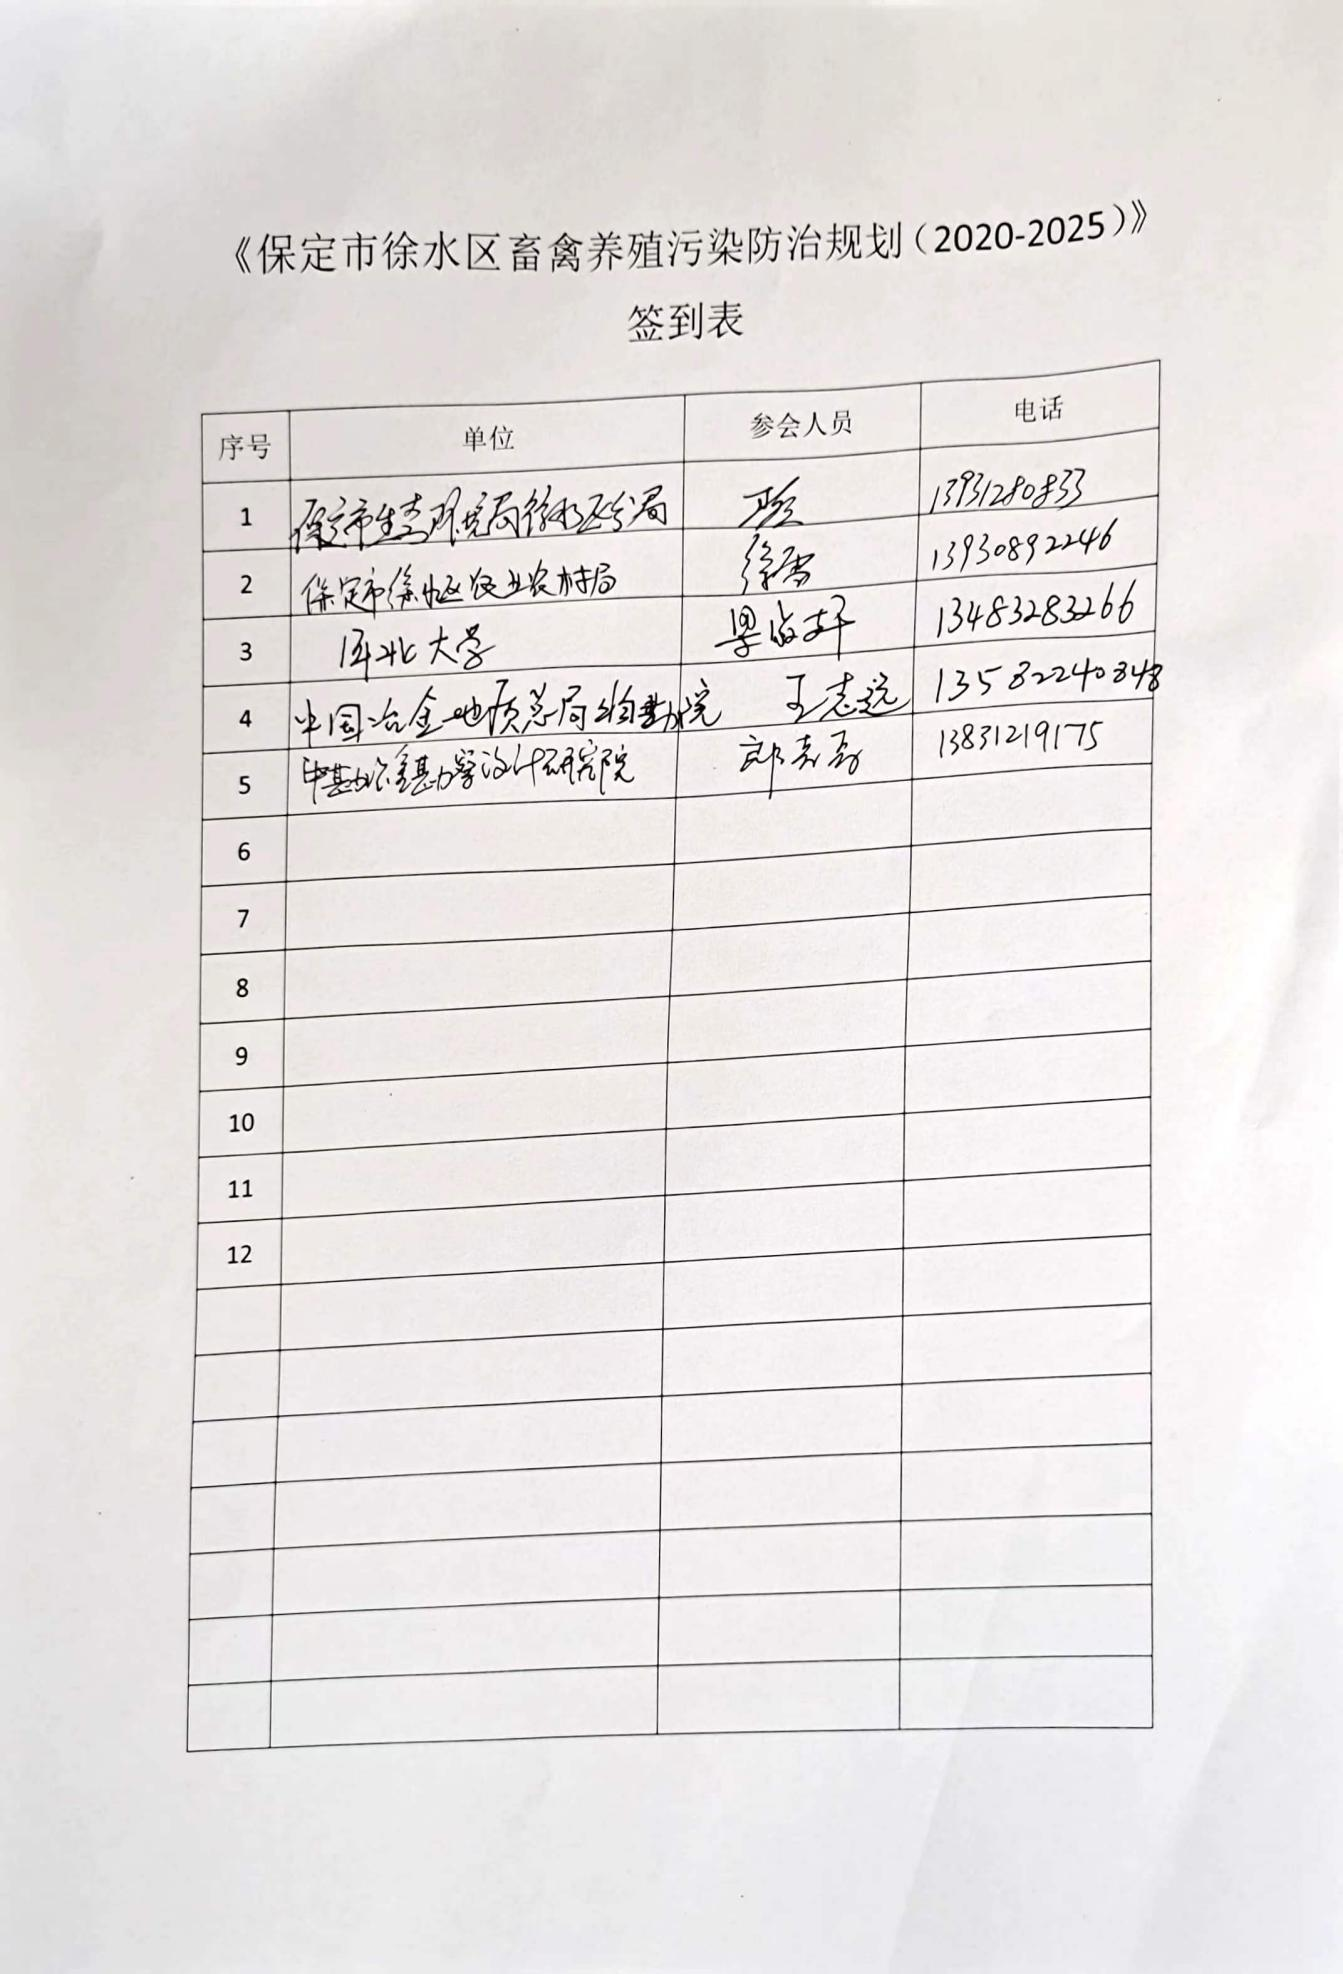 《保定市徐水区畜禽养殖污染防治规划（2020-2025）》
签到表
序号 单位 参会人员 电话
1 保定市生态环境局徐水区分局 13931280833
2 保定市徐水区农业农村局 徐雷 13930892246
3 河北大学 梁 13483283266
4 中国冶金地质总局物勘院 王志远 13582240848
5 中勘冶金勘察设计研究院 郎 13831219175
6
7
8
9
10
11
12